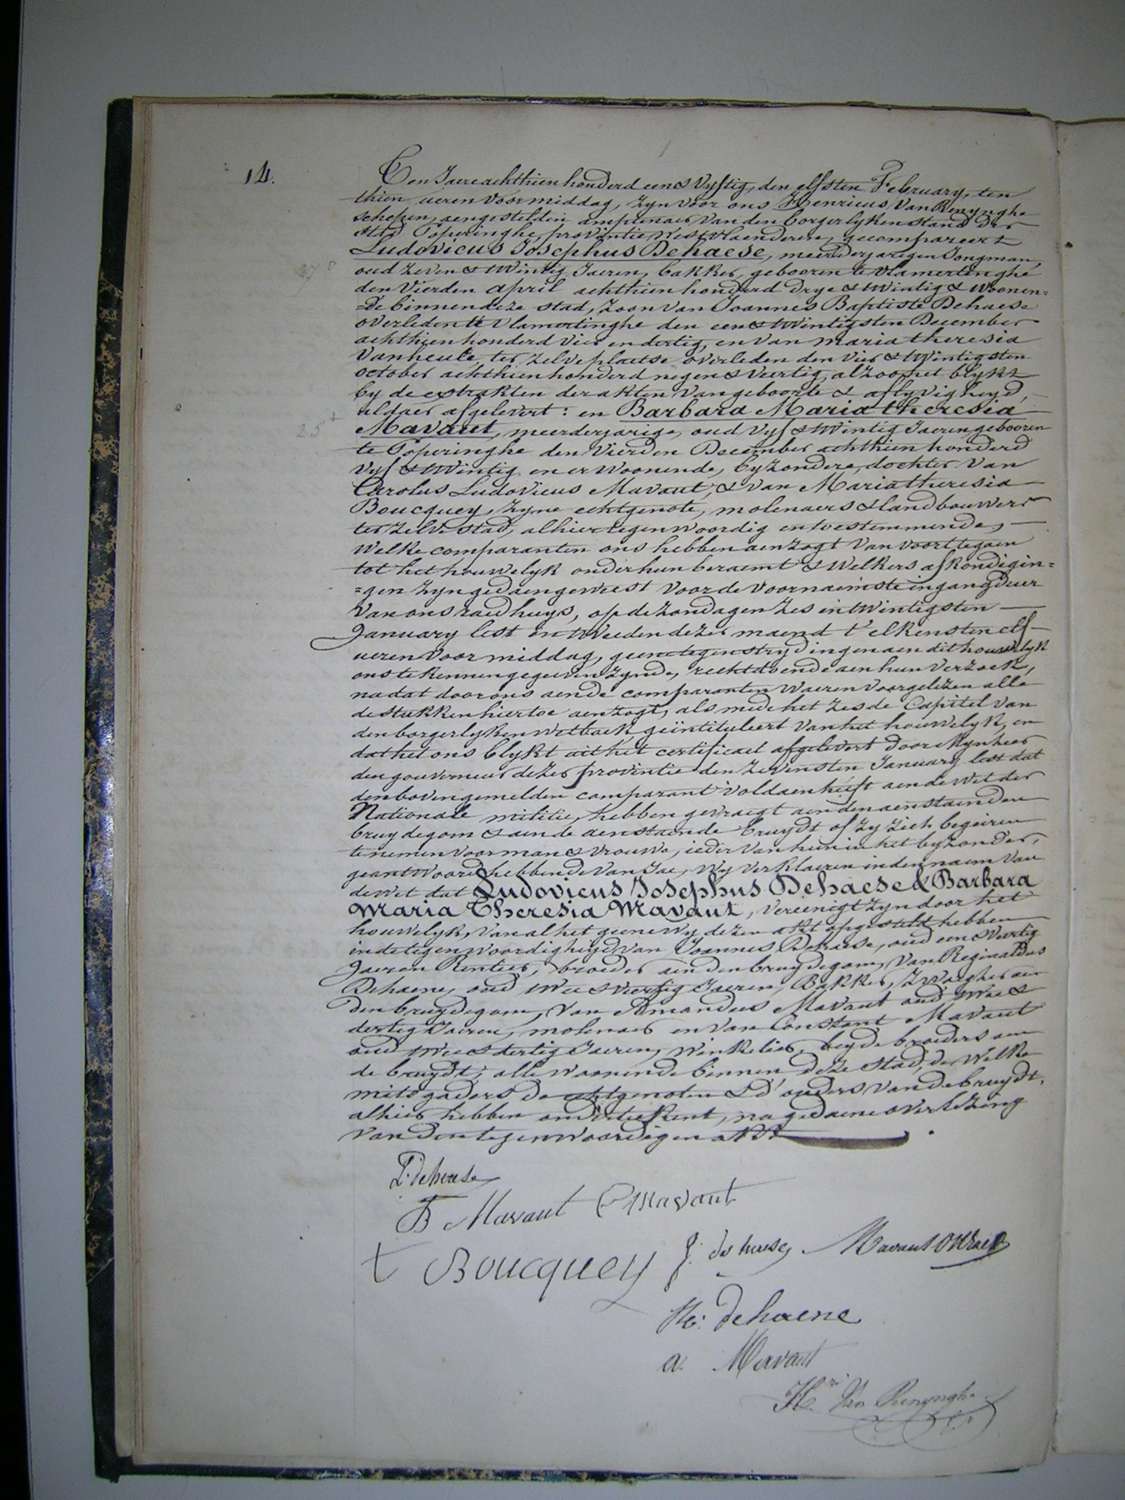 14.
Ten Jaere achthien honderd een & vyftig, den elfsten February, ten
thien ueren voormiddag, zyn voor ons Henricus Van Renynghe
schepen, aengestelden amptenaer van den borgerlyken stand der
stad Poperinghe, provintie westvlaenderen, gecompareert
Ludovicus Josephus Dehaese, meerderjaerigen Jongman,
oud zeven & twintig Jaeren, bakker, gebooren te Vlamertinghe
den vierden april achthien honderd drye & twintig & woonen=
de binnen deze stad, zoon van Joannes Baptiste Dehaese
overleden te Vlamertinghe den een & twintigsten December
achthien honderd vier en dertig, en van Maria theresia
Vanheule, ter zelve plaetse overleden den vier & twintigsten
october achthien honderd negen & veertig, alzoo het blykt
by de extrakten der akten van geboorte & aflyvigheyd,
aldaer afgelevert: en Barbara Maria theresia
25
Mavaut, meerderjarige, oud vyf & twintig Jaeren gebooren
te Poperinghe den vierden December achthien honderd
vyf & twintig en er woonende, byzondere, dochter van
Carolus Ludovicus Mavaut, & van Maria theresia
Boucquey, zyne echtgenote, molenaers & landbouwers
ter zelve stad, alhier tegenwoordig en toestemmende,
welke comparanten ons hebben aenzogt van voort tegaen
tot het houwelyk onder hun beraemt & welkers afkondigin=
=gen zyn gedaen geweest voor de voornaemste ingangdeur
van ons raedhuys, op de zondagen zes en twintigsten
January lest en tweeden dezer maend t' elkens ten elf
ueren voormiddag, geene tegenstrydingen aen dit houwelyk
ons te kennen gegeven zynde, recht doende aen hun verzoek,
na dat door ons aen de comparanten waeren voorgelezen alle
de stukken hiertoe aenzogt, als mede het zesde Capitel van
den borgerlyken wetboek geïntituleert van het houwelyk, en
dat het ons blykt uit het certificaet afgelevert door Mynheer
den gouverneur dezer provintie den zevensten January lest dat
den bovengemelden comparant voldaen heeft aen de wet der
Nationale militie, hebben gevraegt aen den aenstaenden
bruydegom & aen de aenstaende bruydt of zy zich begeiren
te nemen voor man & vrouwe, ieder van hun in het byzonder,
geantwoord hebbende van Jae, wy verklaeren in den naem van
de wet dat Ludovicus Josephus Dehaese & Barbara
Maria Theresia Mavaut, vereenigt zyn door het
houwelyk, van al het geene wy dezen akt opgesteld hebben
in de tegenwoordigheyd van Joannes Dehaese, oud een & veertig
Jaeren Rentier, broeder aen den bruydegom, van Reginaldus
Dehaene, oud twee & veertig Jaeren, Bakker, zwager aen
den bruydegom, van Amandus Mavaut oud twee &
dertig Jaeren, molenaer en van Constant Mavaut
oud twee & dertig Jaeren, winkelier, beyde broeders aen
de bruydt; alle woonende binnen deze stad, de welke
mitsgaders de echtgenoten & d' ouders van de bruydt,
alhier hebben onderteekent, na gedaene overlezing
van den tegenwoordigen akt
L: dehaese
B Mavaut C Mavaut
t Boucquey J. dehaese Mavaut
Re: dehaene
a. Mavaut
Hri Van Renynghe